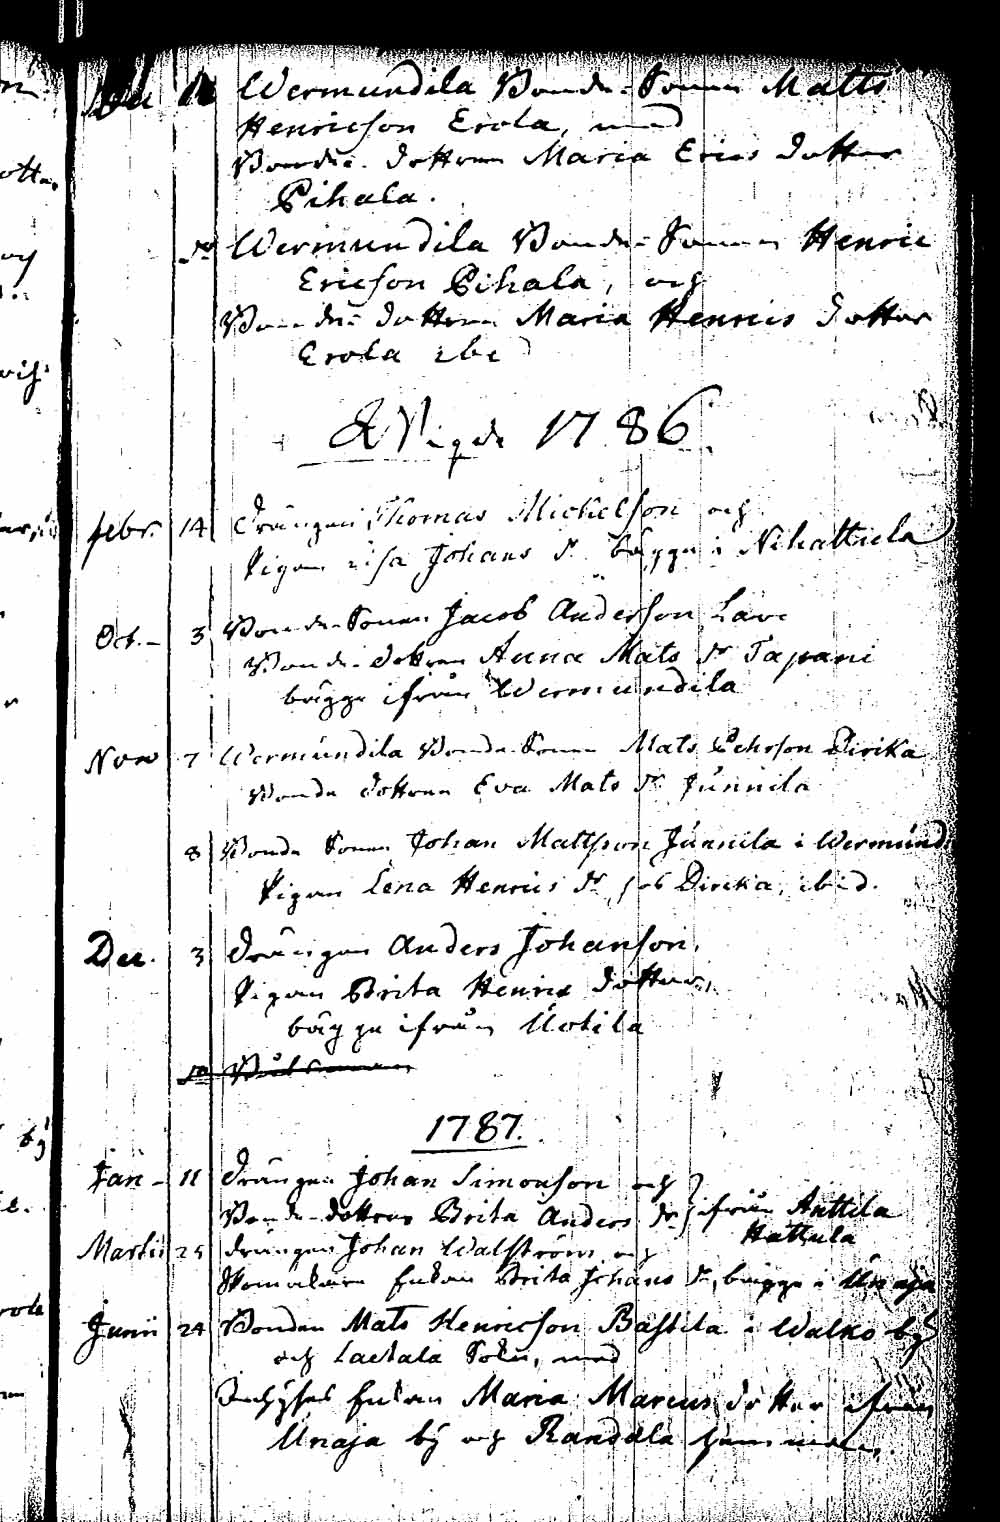 Dec Wermundila Bonde-Sonen Matts
Henricson Erola, med
Bonde-dottren Maria Erics dotter
Pihala.
Wermundila Bonde-Sonen Henric
Ericson Pihala, och
Bonde-dottren Maria Henrics dotter
Erola ibid
Wigde 1786.
Febr. 14 Drängen Thomas Michelson och
Pigan Lisa Johans dr bägge i Nihattula
Oct. 3 Bonde-Sonen Jacob Anderson Lavi
Bonde-dottren Anna Mats dr Tapani
bägge ifrån Wermundila
Nov 7 Wermundila Bonde Sonen Mats Pehrson Dirika
Bonde dottren Eva Mats dr Junnila
8 Bonde Sonen Johan Mattsson Junnila i Wermund.
Pigan Lena Henrics dr Dirika, ibid.
Dec. 3 Drängen Anders Johanson,
Pigan Brita Henrics dotter,
bägge ifrån Uotila
1787.
Jan. 11 Drängen Johan Simonson och
Bonde-dottren Brita Anders dr ifrån Anttila
Hattula
Martii 25 Drängen Johan Walström och
Enkan Brita Johans dr, bägge i Unaja
Junii 24 Bonden Mats Henricson Bastila i Walko by
och Laetala Sokn, med
Inhyses Enkan Maria Marcus dotter ifrån
Unaja by och Randala hemman.